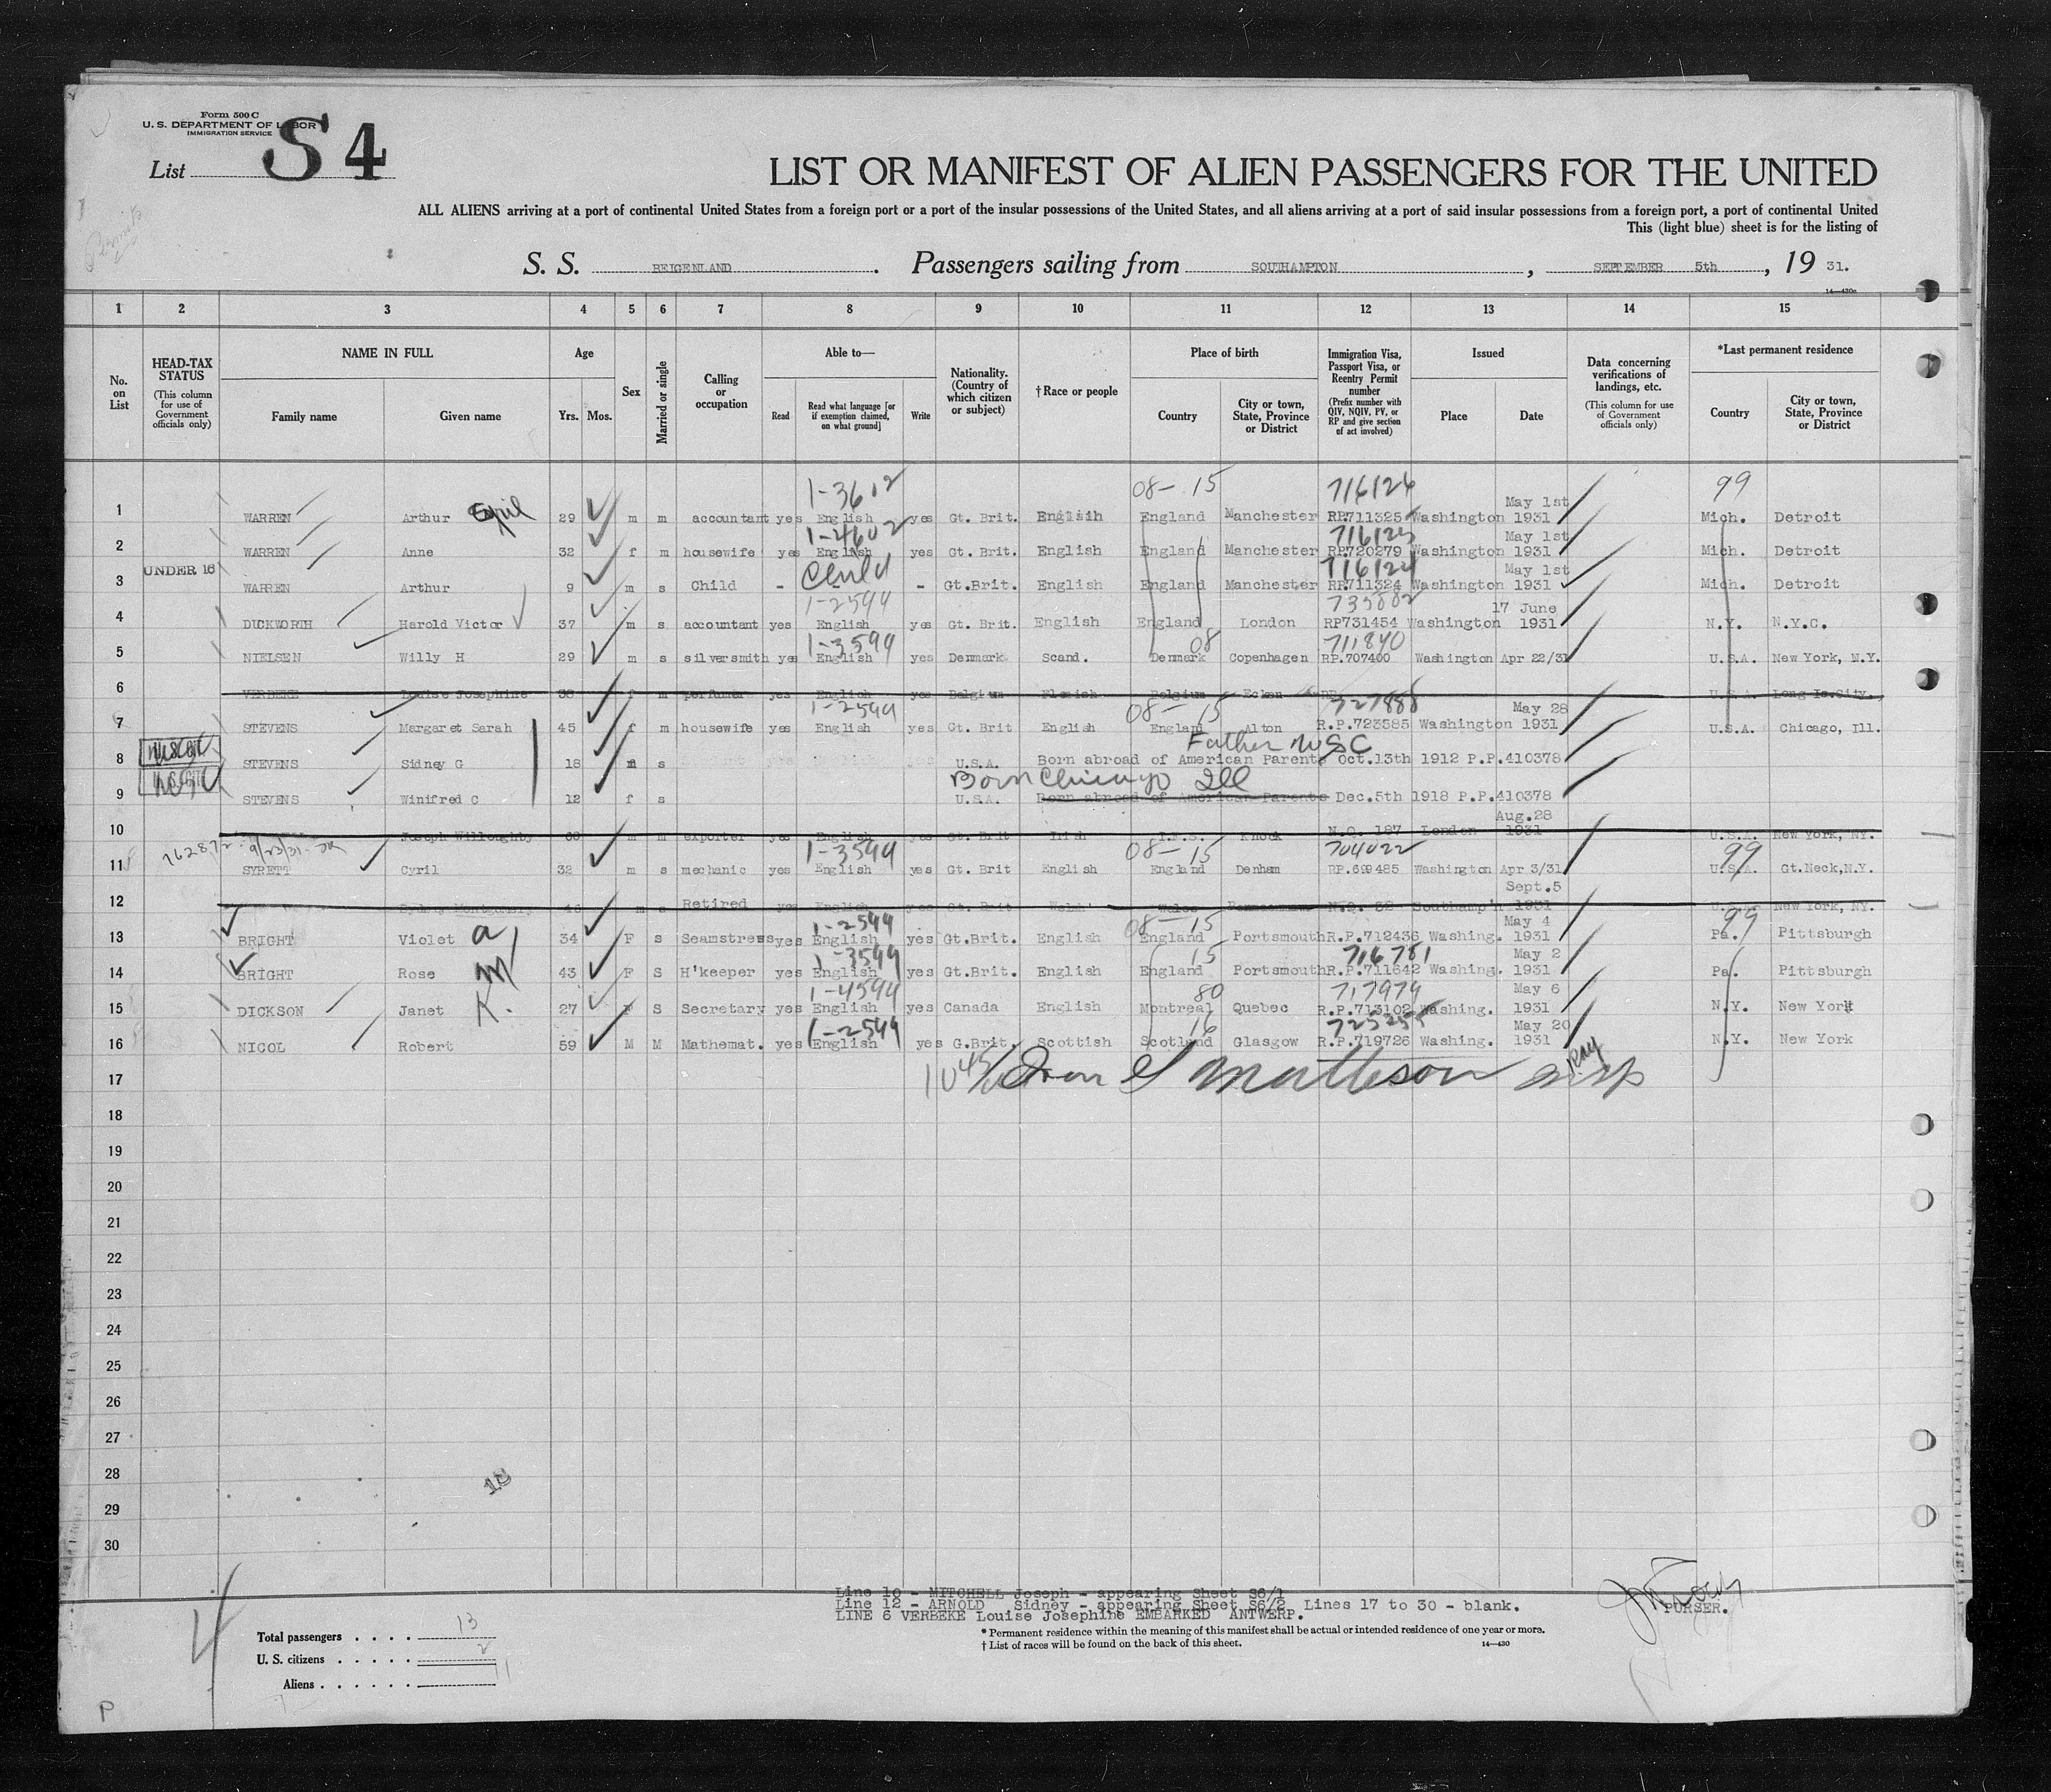 Form 500 C
U. S. DEPARTMENT OF LABOR
IMMIGRATION SERVICE
List S 4
LIST OR MANIFEST OF ALIEN PASSENGERS FOR THE UNITED
ALL ALIENS arriving at a port of continental United States from a foreign port or a port of the insular possessions of the United States, and all aliens arriving at a port of said insular possessions from a foreign port, a port of continental United
This (light blue) sheet is for the listing of
S. S. BELGENLAND. Passengers sailing from SOUTHAMPTON, SEPTEMBER 5th, 19 31.
14—430a
1 2 3 4 5 6 7 8 9 10 11 12 13 14 15
No. on List
HEAD-TAX STATUS (This column for use of Government officials only)
NAME IN FULL Family name Given name
Age Yrs. Mos.
Sex
Married or single
Calling or occupation
Able to— Read Read what language [or if exemption claimed, on what ground] Write
Nationality. (Country of which citizen or subject)
†Race or people
Place of birth Country City or town, State, Province or District
Immigration Visa, Passport Visa, or Reentry Permit number (Prefix number with QIV, NQIV, PV, or RP and give section of act involved)
Issued Place Date
Data concerning verifications of landings, etc. (This column for use of Government officials only)
*Last permanent residence Country City or town, State, Province or District
1-3612 08-15 716126 99
1 WARREN Arthur Cyril 29 m m accountant yes English yes Gt. Brit. English England Manchester RP.711325 Washington May 1st 1931 Mich. Detroit
1-4602 716125
2 WARREN Anne 32 f m housewife yes English yes Gt. Brit. English England Manchester RP720279 Washington May 1st 1931 Mich. Detroit
UNDER 16 Child 716124
3 WARREN Arthur 9 m s Child - - Gt.Brit. English England Manchester RP711324 Washington May 1st 1931 Mich. Detroit
1-2594
4 DUCKWORTH Harold Victor 37 m s accountant yes English yes Gt. Brit. English England London RP731454 Washington 17 June 1931 N.Y. N.Y.C.
1-3594 08 711840
5 NIELSEN Willy H 29 m s silversmith yes English yes Denmark Scand. Denmark Copenhagen RP.707400 Washington Apr 22/31 U.S.A. New York, N.Y.
6 VERBEKE Louise Josephine 38 f m perfumer yes English yes Belgium Flemish Belgium RP U.S.A. Long Is.City.
1-2594 08-15 727888
7 STEVENS Margaret Sarah 45 f m housewife yes English yes Gt. Brit English England Alton R.P.723585 Washington May 28 1931 U.S.A. Chicago, Ill.
Father USC
8 STEVENS Sidney G 18 m s U.S.A. Born abroad of American Parents Oct.13th 1912 P.P.410378
Born Chicago Ill
9 STEVENS Winifred C 12 f s U.S.A. Born abroad of American Parents Dec.5th 1918 P.P.410378
10 Joseph Willoughby 60 m m exporter yes English yes Gt. Brit Irish I.F.S. Knock N.Q. 187 London Aug.28 1931 U.S.A. New York, NY.
1-3594 08-15 704022 99
11 SYRETT Cyril 32 m s mechanic yes English yes Gt. Brit English England Denham RP.699485 Washington Apr 3/31 U.S.A. Gt.Neck,N.Y.
12 Sydney Montgomery m s Retired yes English yes Gt. Brit Wales N.Q. Southamp'n Sept.5 1931 New York, NY.
1-2594 08-15 99
13 BRIGHT Violet A 34 F s Seamstress yes English yes Gt.Brit. English England Portsmouth R.P.712436 Washing. May 4 1931 Pa. Pittsburgh
1-3594 15 716781
14 BRIGHT Rose M 43 F S H'keeper yes English yes Gt.Brit. English England Portsmouth R.P.711642 Washing. May 2 1931 Pa. Pittsburgh
1-4594 80 717979
15 DICKSON Janet K. 27 F S Secretary yes English yes Canada English Montreal Quebec R.P.713102 Washing. May 6 1931 N.Y. New York
1-2594 16 725255
16 NICOL Robert 59 M M Mathemat. yes English yes G.Brit. Scottish Scotland Glasgow R.P.719726 Washing. May 20 1931 N.Y. New York
17 Matteson
18
19
20
21
22
23
24
25
26
27
28
29
30
Line 10 - MITCHELL Joseph - appearing Sheet S6/1
Line 12 - ARNOLD Sidney - appearing Sheet S6/2 Lines 17 to 30 - blank.
LINE 6 VERBEKE Louise Josephine EMBARKED ANTWERP.
PURSER.
* Permanent residence within the meaning of this manifest shall be actual or intended residence of one year or more.
† List of races will be found on the back of this sheet.
14—430
Total passengers . . . . 13
U. S. citizens . . . . . 2
Aliens . . . . . . 11
4
P